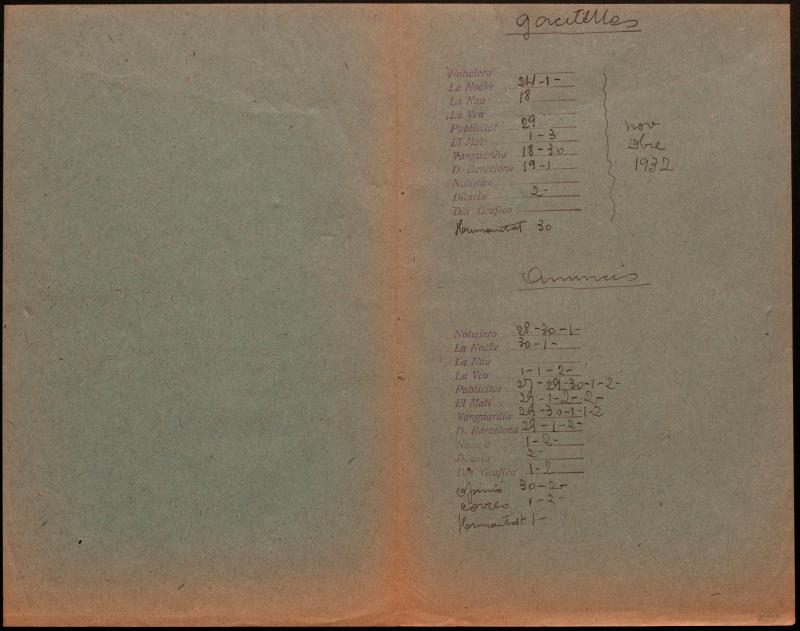 Gacetilles
Noticiero
La Noche 24-1-
La Nau 18
La Veu
Publicitat 29
El Matí 1-3
Vanguardia 18-30
D. Barcelona 19-1
Noticias
Diluvio 2-
Dia Gráfico
Humanitat 30
nov
dbre
1932
Anuncis
Noticiero 28-30-1-
La Noche 30-1-
La Nau
La Veu 1-1-2-
Publicitat 27-29-30-1-2-
El Matí 29-1-2-2-
Vanguardia 29-30-1-1-2
D. Barcelona 29-1-2-
1-2-
Diluvio 2-
Dia Gráfico 1-2
Opinió 30-2-
Correo 1-2-
Humanitat 1-